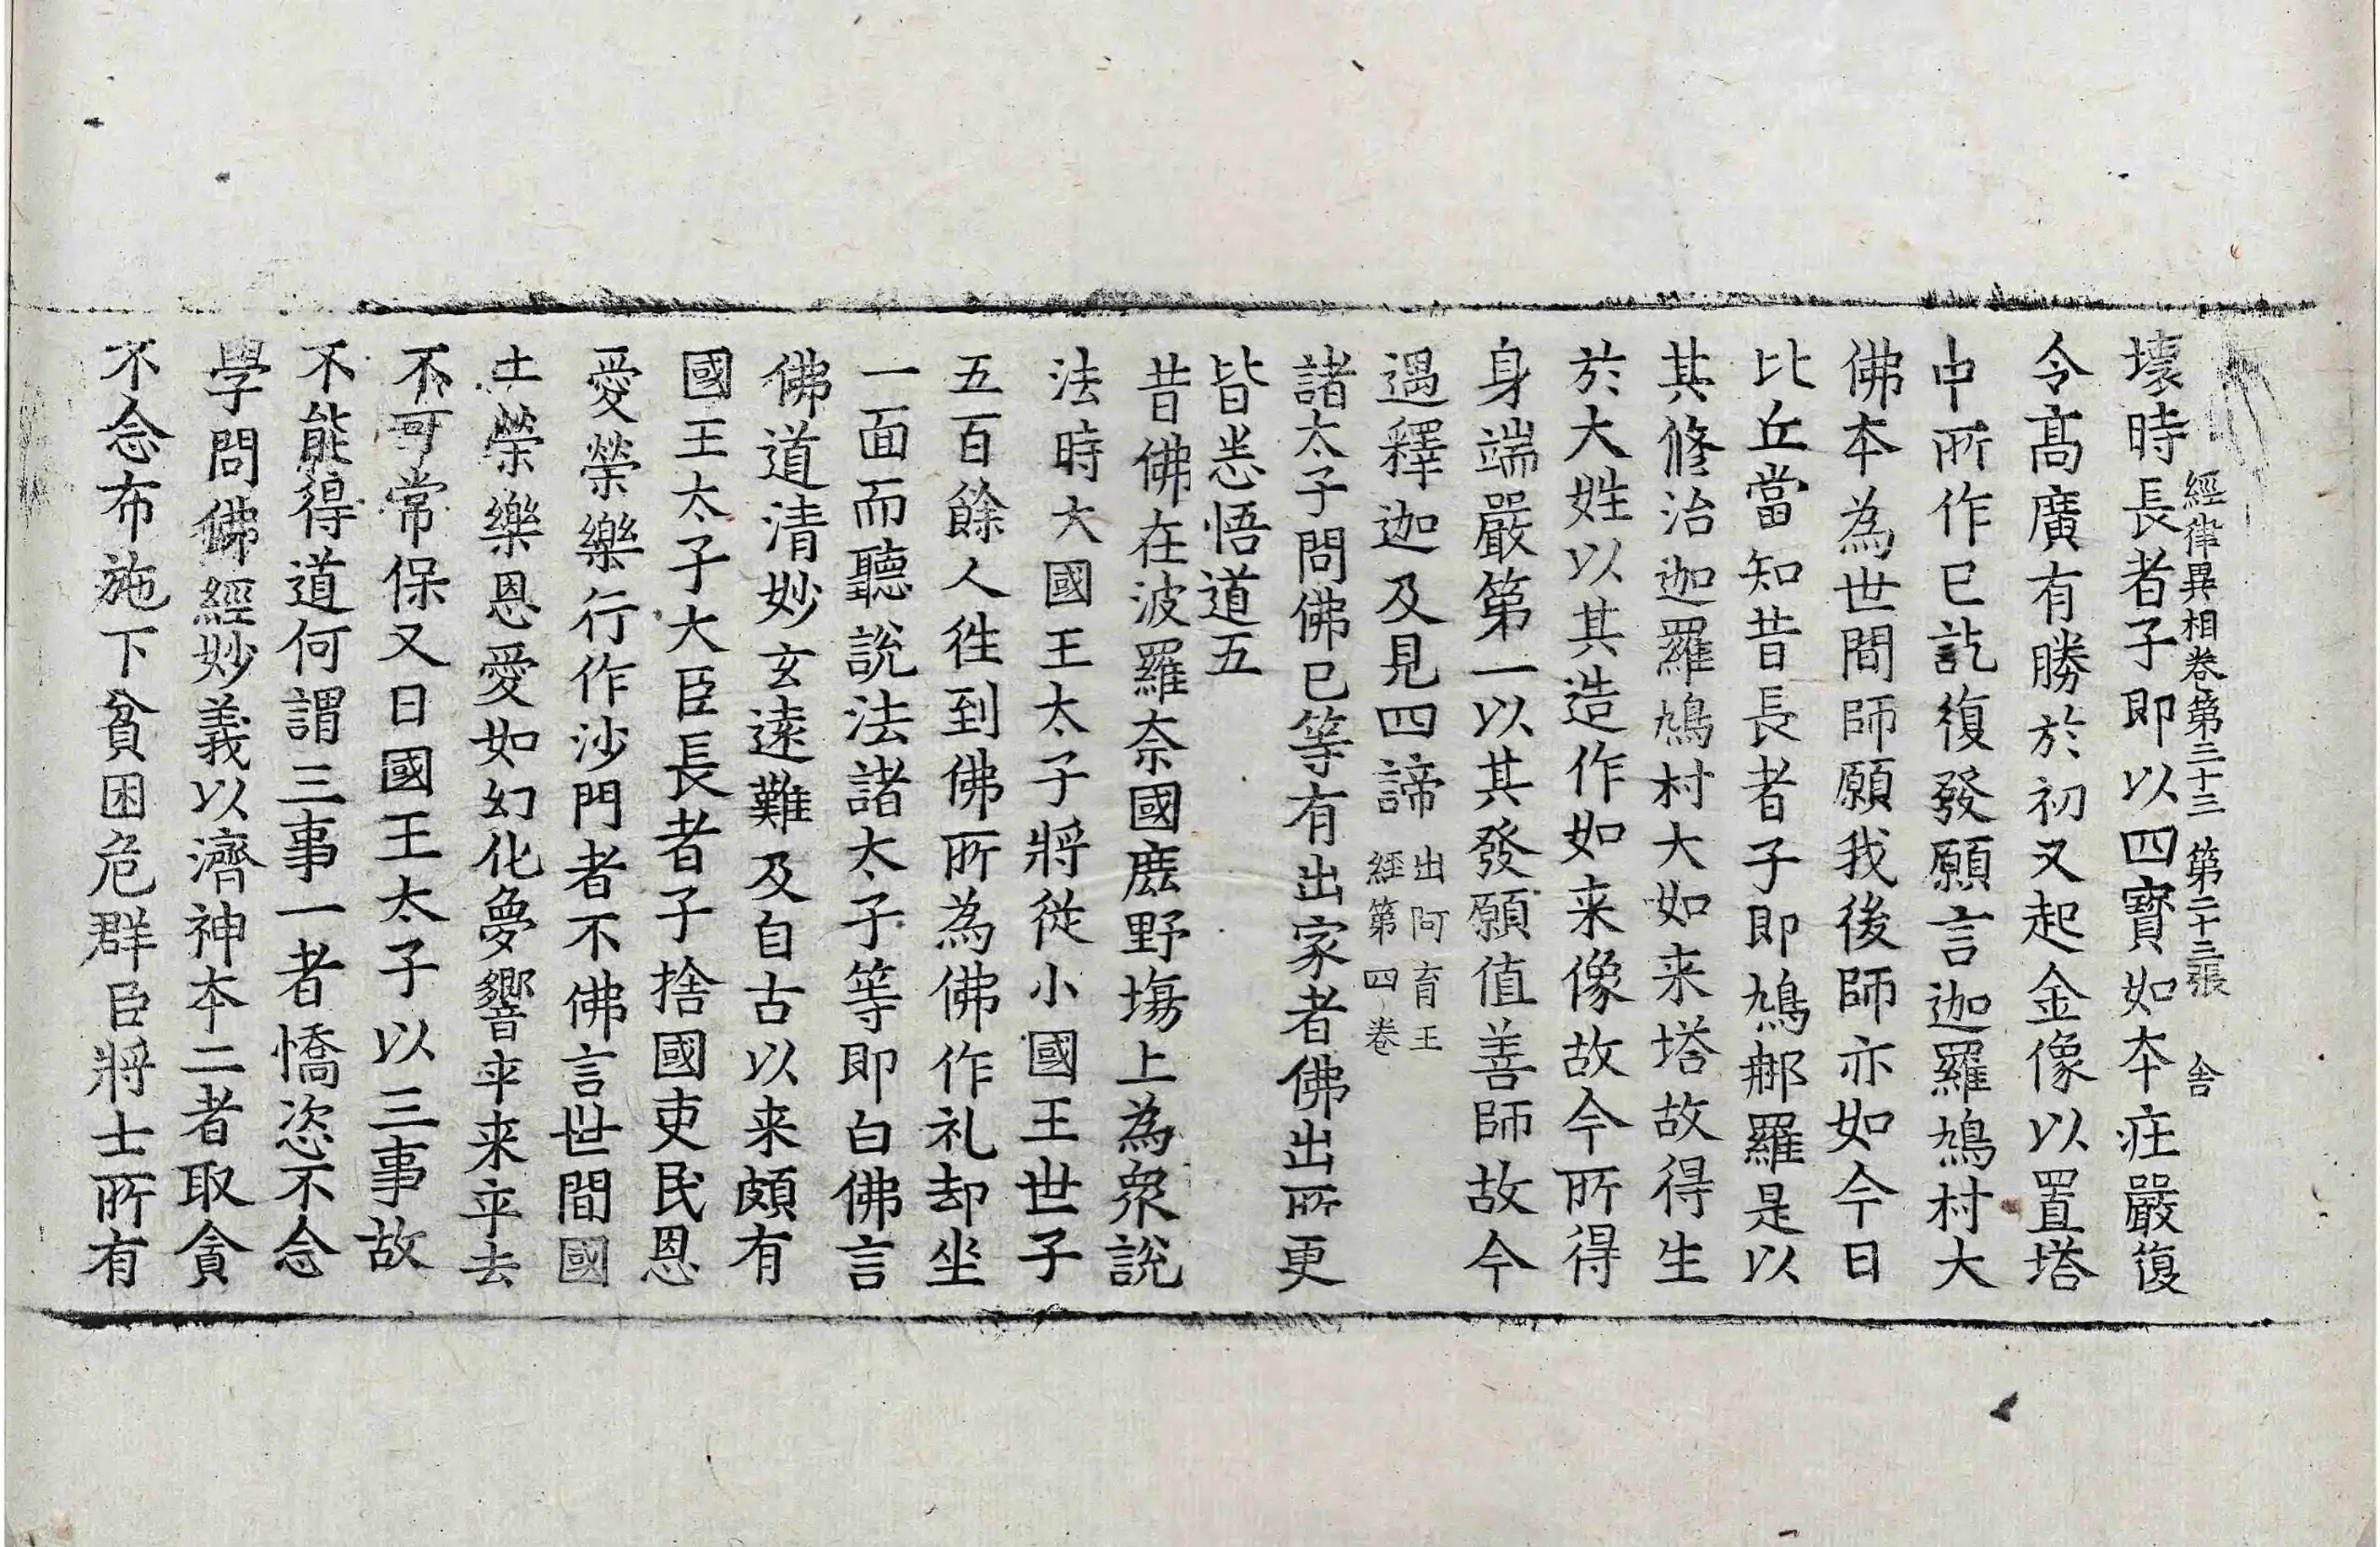 經律異相卷第三十三 第二十三張 舍
壞時長者子即以四寶如本庄嚴復
令髙廣有勝於初又起金像以置塔
中所作已訖復發願言迦羅鳩村大
佛本為世間師願我後師亦如今日
比丘當知昔長者子即鳩郍羅是以
其修治迦羅鳩村大如来塔故得生
於大姓以其造作如来像故今所得
身端嚴第一以其發願值善師故今
遇釋迦及見四諦 出阿育王經第四卷
諸太子問佛已等有出家者佛出所更
皆悉悟道五
昔佛在波羅奈國鹿野塲上為衆說
法時大國王太子將従小國王世子
五百餘人徃到佛所為佛作礼却坐
一面而聽說法諸太子等即白佛言
佛道清妙玄遠難及自古以来頗有
國王太子大臣長者子捨國吏民恩
愛榮樂行作沙門者不佛言世間國
土榮樂恩愛如幻化夢響卒来卒去
不可常保又曰國王太子以三事故
不能得道何謂三事一者憍恣不念
學問佛經妙義以濟神本二者取貪
不念布施下貧困危群臣將士所有